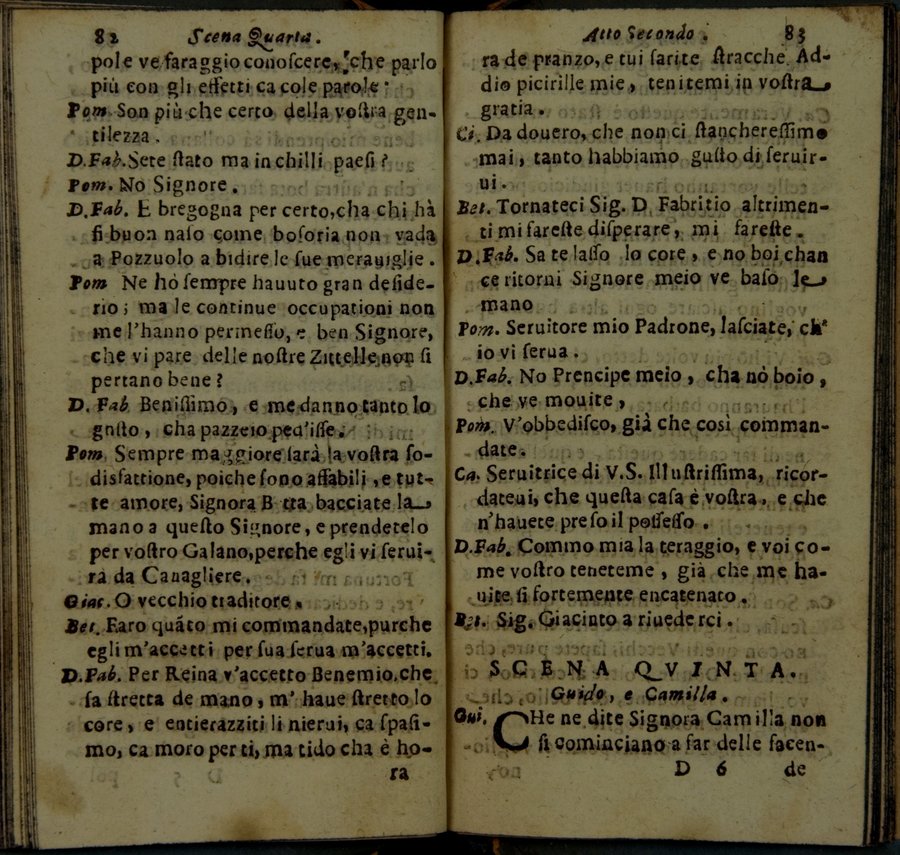 82 Scena Quarta.
pole ve faraggio conoſcere, che parlo
più con gli effetti ca cole parole
Pom Son più che certo della voſtra gen-
tilezza.
D.Fab. Sete ſtato ma in chilli paeſi?
Pom. No Signore.
D.Fab. E bregogna per certo, cha chi hà
ſi buon naſo come boſoria non vada
a Pozzuolo a bidire le ſue merauiglie.
Pom Ne hò ſempre hauuto gran deſide-
rio; ma le continue occupationi non
me l'hanno permeſſo, e ben Signore,
che vi pare delle noſtre Zittelle non ſi
pertano bene?
D. Fab Beniſſimo, e me danno tanto lo
guſto, cha pazzeio ped'iſſe.
Pom Sempre maggiore ſarà la voſtra ſo-
disfattione, poiche ſono affabili, e tut-
te amore, Signora B tta bacciate la
mano a queſto Signore, e prendetelo
per voſtro Galano, perche egli vi ſerui-
rà da Canagliere.
Giac. O vecchio traditore.
Bet. Faro quáto mi commandate, purche
egli m'accetti per ſua ſerua m'accetti.
D.Fab. Per Reina v'accetto Benemio, che
ſa ſtretta de mano, m' haue ſtretto lo
core, e entierazziti li nierui, ca ſpaſi-
mo, ca moro per ti, ma tido cha è ho-
ra
Atto Secondo. 83
ra de pranzo, e tui ſarite ſtracche. Ad-
dio picirille mie, tenitemi in voſtra
gratia.
Ci. Da douero, che non ci ſtanchereſſimo
mai, tanto habbiamo guſto di ſeruir-
ui.
Bet. Tornateci Sig. D Fabritio altrimen-
ti mi fareſte diſperare, mi fareſte.
D.Fab. Sa te laſſo lo core, e no boi chan
ce ritorni Signore meio ve baſo le
mano
Pom. Seruitore mio Padrone, laſciate, ch'
io vi ſerua.
D.Fab. No Prencipe meio, cha nò boio,
che ve mouite,
Pom. V'obbediſco, già che così comman-
date.
Ca. Seruitrice di V.S. Illuſtriſſima, ricor-
dateui, che queſta caſa è voſtra, e che
n'hauete preſo il poſſeſſo.
D.Fab. Commo mia la teraggio, e voi co-
me voſtro teneteme, già che me ha-
uite ſi fortemente encatenato.
Bet. Sig. Giacinto a riuederci.
SCENA QVINTA.
Guido, e Camilla.
Gui. CHe ne dite Signora Camilla non
ſi cominciano a far delle facen-
D 6 de